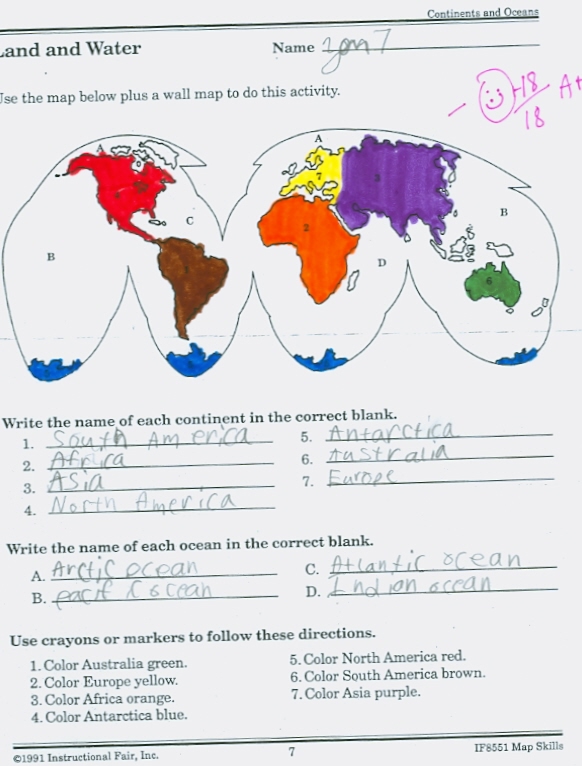 Continents and Oceans
Land and Water
Name
Use the map below plus a wall map to do this activity.
-18/18 A+
A
A
7
3
4
C
2
B
B
D
1
6
5
5
5
5
Write the name of each continent in the correct blank.
1. South America
2. Africa
3. Asia
4. North America
5. Antarctica
6. Australia
7. Europe
Write the name of each ocean in the correct blank.
A. Arctic ocean
B. pacific ocean
C. Atlantic ocean
D. Indian ocean
Use crayons or markers to follow these directions.
1. Color Australia green.
2. Color Europe yellow.
3. Color Africa orange.
4. Color Antarctica blue.
5. Color North America red.
6. Color South America brown.
7. Color Asia purple.
©1991 Instructional Fair, Inc.
7
IF8551 Map Skills